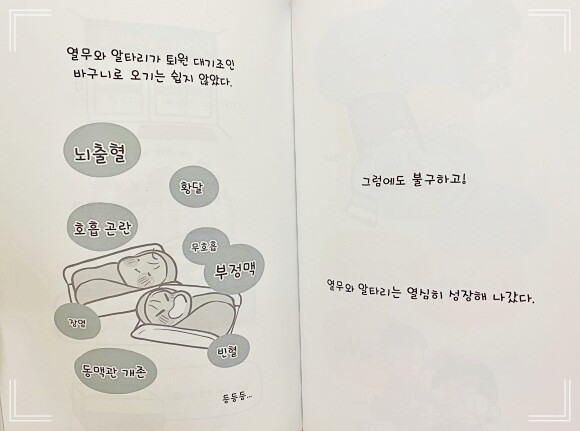 열무와 알타리가 퇴원 대기조인
바구니로 오기는 쉽지 않았다.
뇌출혈
황달
호흡 곤란
무호흡
부정맥
장염
빈혈
동맥관 개존
등등등...
그럼에도 불구하고!
열무와 알타리는 열심히 성장해 나갔다.